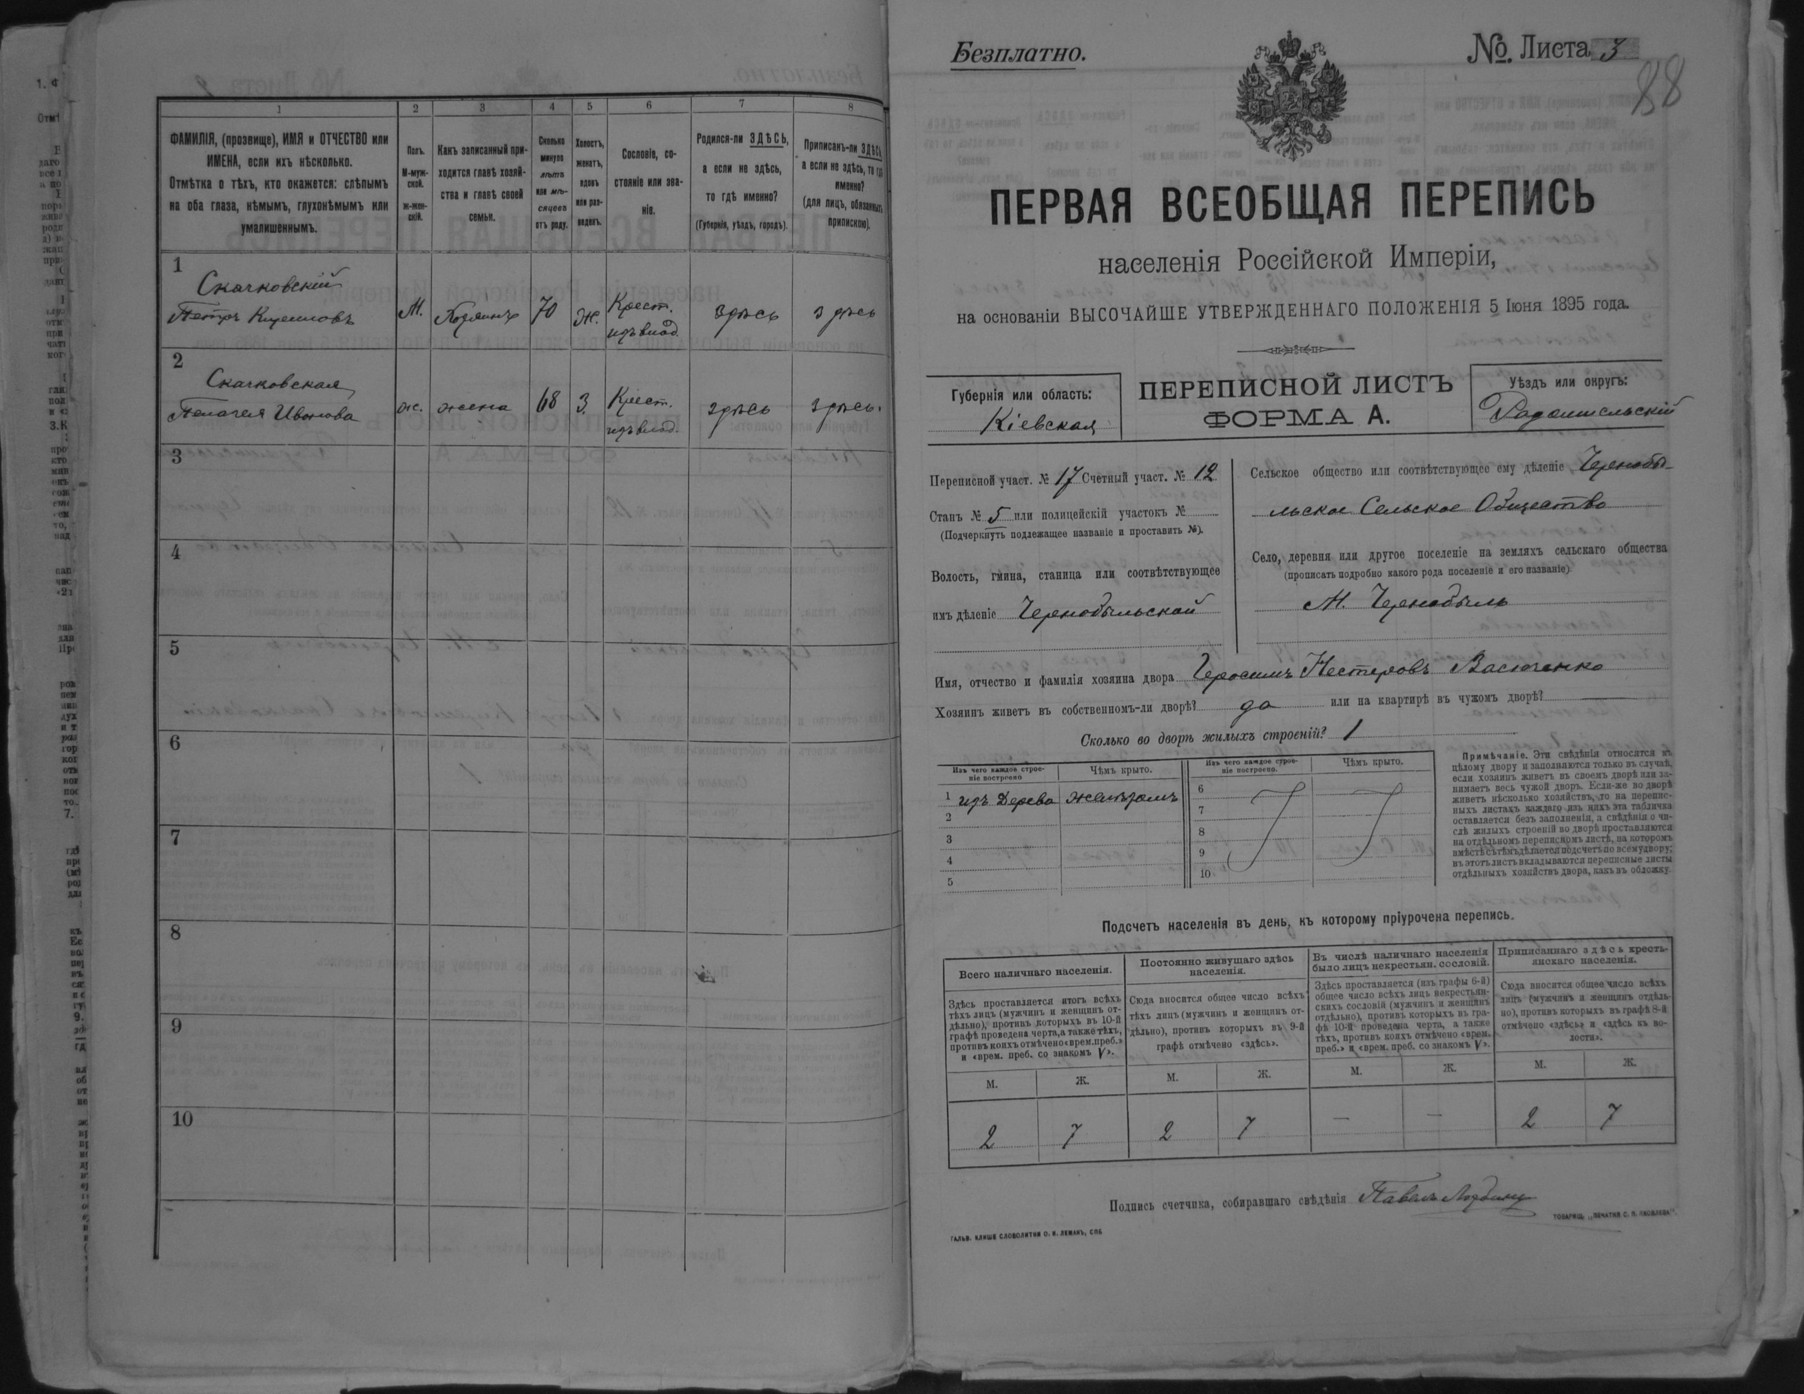 1
2
3
4
5
6
7
8
ФАМИЛІЯ, (прозвище), ИМЯ и ОТЧЕСТВО или
ИМЕНА, если ихъ нѣсколько.
Отмѣтка о тѣхъ, кто окажется: слѣпымъ
на оба глаза, нѣмымъ, глухонѣмымъ или
умалишеннымъ.
Полъ.
М-муж-
ской.
ж-жен-
скій.
Какъ записанный при-
ходится главѣ хозяй-
ства и главѣ своей
семьи.
Сколько
минуло
лѣтъ
или мѣ-
сяцевъ
отъ роду.
Холостъ,
женатъ,
вдовъ
или раз-
веденъ.
Сословіе, со-
стояніе или зва-
ніе.
Родился-ли ЗДѢСЬ,
а если не здѣсь,
то гдѣ именно?
(Губернія, уѣздъ, городъ).
Приписанъ-ли ЗДѢСЬ
а если не здѣсь, то гдѣ
именно?
(для лицъ, обязанныхъ
припискою).
1
Скачковскій
Петръ Кириловъ
М.
Хозяинъ
70
Ж.
Крест.
изъ влад.
здѣсь
здѣсь
2
Скачковская
Пелагея Иванова
ж.
жена
68
З.
Крест.
изъ влад.
здѣсь
здѣсь.
3
4
5
6
7
8
9
10
Безплатно.
№. Листа 3
88
ПЕРВАЯ ВСЕОБЩАЯ ПЕРЕПИСЬ
населенія Россійской Имперіи,
на основаніи ВЫСОЧАЙШЕ УТВЕРЖДЕННАГО ПОЛОЖЕНІЯ 5 Іюня 1895 года.
Губернія или область:
Кіевская
ПЕРЕПИСНОЙ ЛИСТЪ
ФОРМА А.
Уѣздъ или округъ:
Радомысльскій
Переписной участ. № 17 Счетный участ. № 12
Станъ № 5 или полицейскій участокъ №
(Подчеркнуть подлежащее названіе и проставить №).
Волость, гмина, станица или соотвѣтствующее
имъ дѣленіе Чернобыльской
Сельское общество или соотвѣтствующее ему дѣленіе Чернобы-
льское Сельское Общество
Село, деревня или другое поселеніе на земляхъ сельскаго общества
(прописать подробно какого рода поселеніе и его названіе)
М. Чернобыль
Имя, отчество и фамилія хозяина двора Герасимъ Нестеровъ Васюченко
Хозяинъ живетъ въ собственномъ-ли дворѣ? да или на квартирѣ въ чужомъ дворѣ?
Сколько во дворѣ жилыхъ строеній? 1
Изъ чего каждое строе-
ніе построено
Чѣмъ крыто.
Изъ чего каждое строе-
ніе построено.
Чѣмъ крыто.
1 изъ Дерева
2
3
4
5
6
7
8
9
10
Примѣчаніе. Эти свѣдѣнія относятся къ
цѣлому двору и заполняются только въ случаѣ,
если хозяинъ живетъ въ своемъ дворѣ или за-
нимаетъ весь чужой дворъ. Если-же во дворѣ
живетъ нѣсколько хозяйствъ, то на перепис-
ныхъ листахъ каждаго изъ нихъ эта табличка
оставляется безъ заполненія, а свѣдѣнія о чи-
слѣ жилыхъ строеній во дворѣ проставляются
на отдѣльномъ переписномъ листѣ, на которомъ
вмѣстѣ съ тѣмъ дѣлается подсчетъ по всему двору;
въ этотъ листъ вкладываются переписные листы
отдѣльныхъ хозяйствъ двора, какъ въ обложку.
Подсчетъ населенія въ день, къ которому пріурочена перепись.
Всего наличнаго населенія.
Постоянно живущаго здѣсь
населенія.
Въ числѣ наличнаго населенія
было лицъ некрестьян. сословій.
Приписаннаго здѣсь кресть-
янскаго населенія.
Здѣсь проставляется итогъ всѣхъ
тѣхъ лицъ (мужчинъ и женщинъ от-
дѣльно), противъ которыхъ въ 10-й
графѣ проведена черта, а также тѣхъ,
противъ коихъ отмѣчено «врем. преб.»
и «врем. преб. со знакомъ V».
Сюда вносится общее число всѣхъ
тѣхъ лицъ (мужчинъ и женщинъ от-
дѣльно), противъ которыхъ въ 9-й
графѣ отмѣчено «здѣсь».
Здѣсь проставляется (изъ графы 6-й)
общее число всѣхъ лицъ некрестьян-
скихъ сословій (мужчинъ и женщинъ
отдѣльно), противъ которыхъ въ гра-
фѣ 10-й проведена черта, а также
тѣхъ, противъ коихъ отмѣчено «врем.
преб.» и «врем. преб. со знакомъ V».
Сюда вносится общее число всѣхъ
лицъ (мужчинъ и женщинъ отдѣль-
но), противъ которыхъ въ графѣ 8-й
отмѣчено «здѣсь» и «здѣсь къ во-
лости».
М. Ж. М. Ж. М. Ж. М. Ж.
2 7 2 7 — — 2 7
Подпись счетчика, собиравшаго свѣдѣнія Павелъ
ГАЛЬВ. КЛИШЕ СЛОВОЛИТНИ О. И. ЛЕМАНЪ, СПБ.
ТОВАРИЩ. „ПЕЧАТНЯ С. П. ЯКОВЛЕВА“.